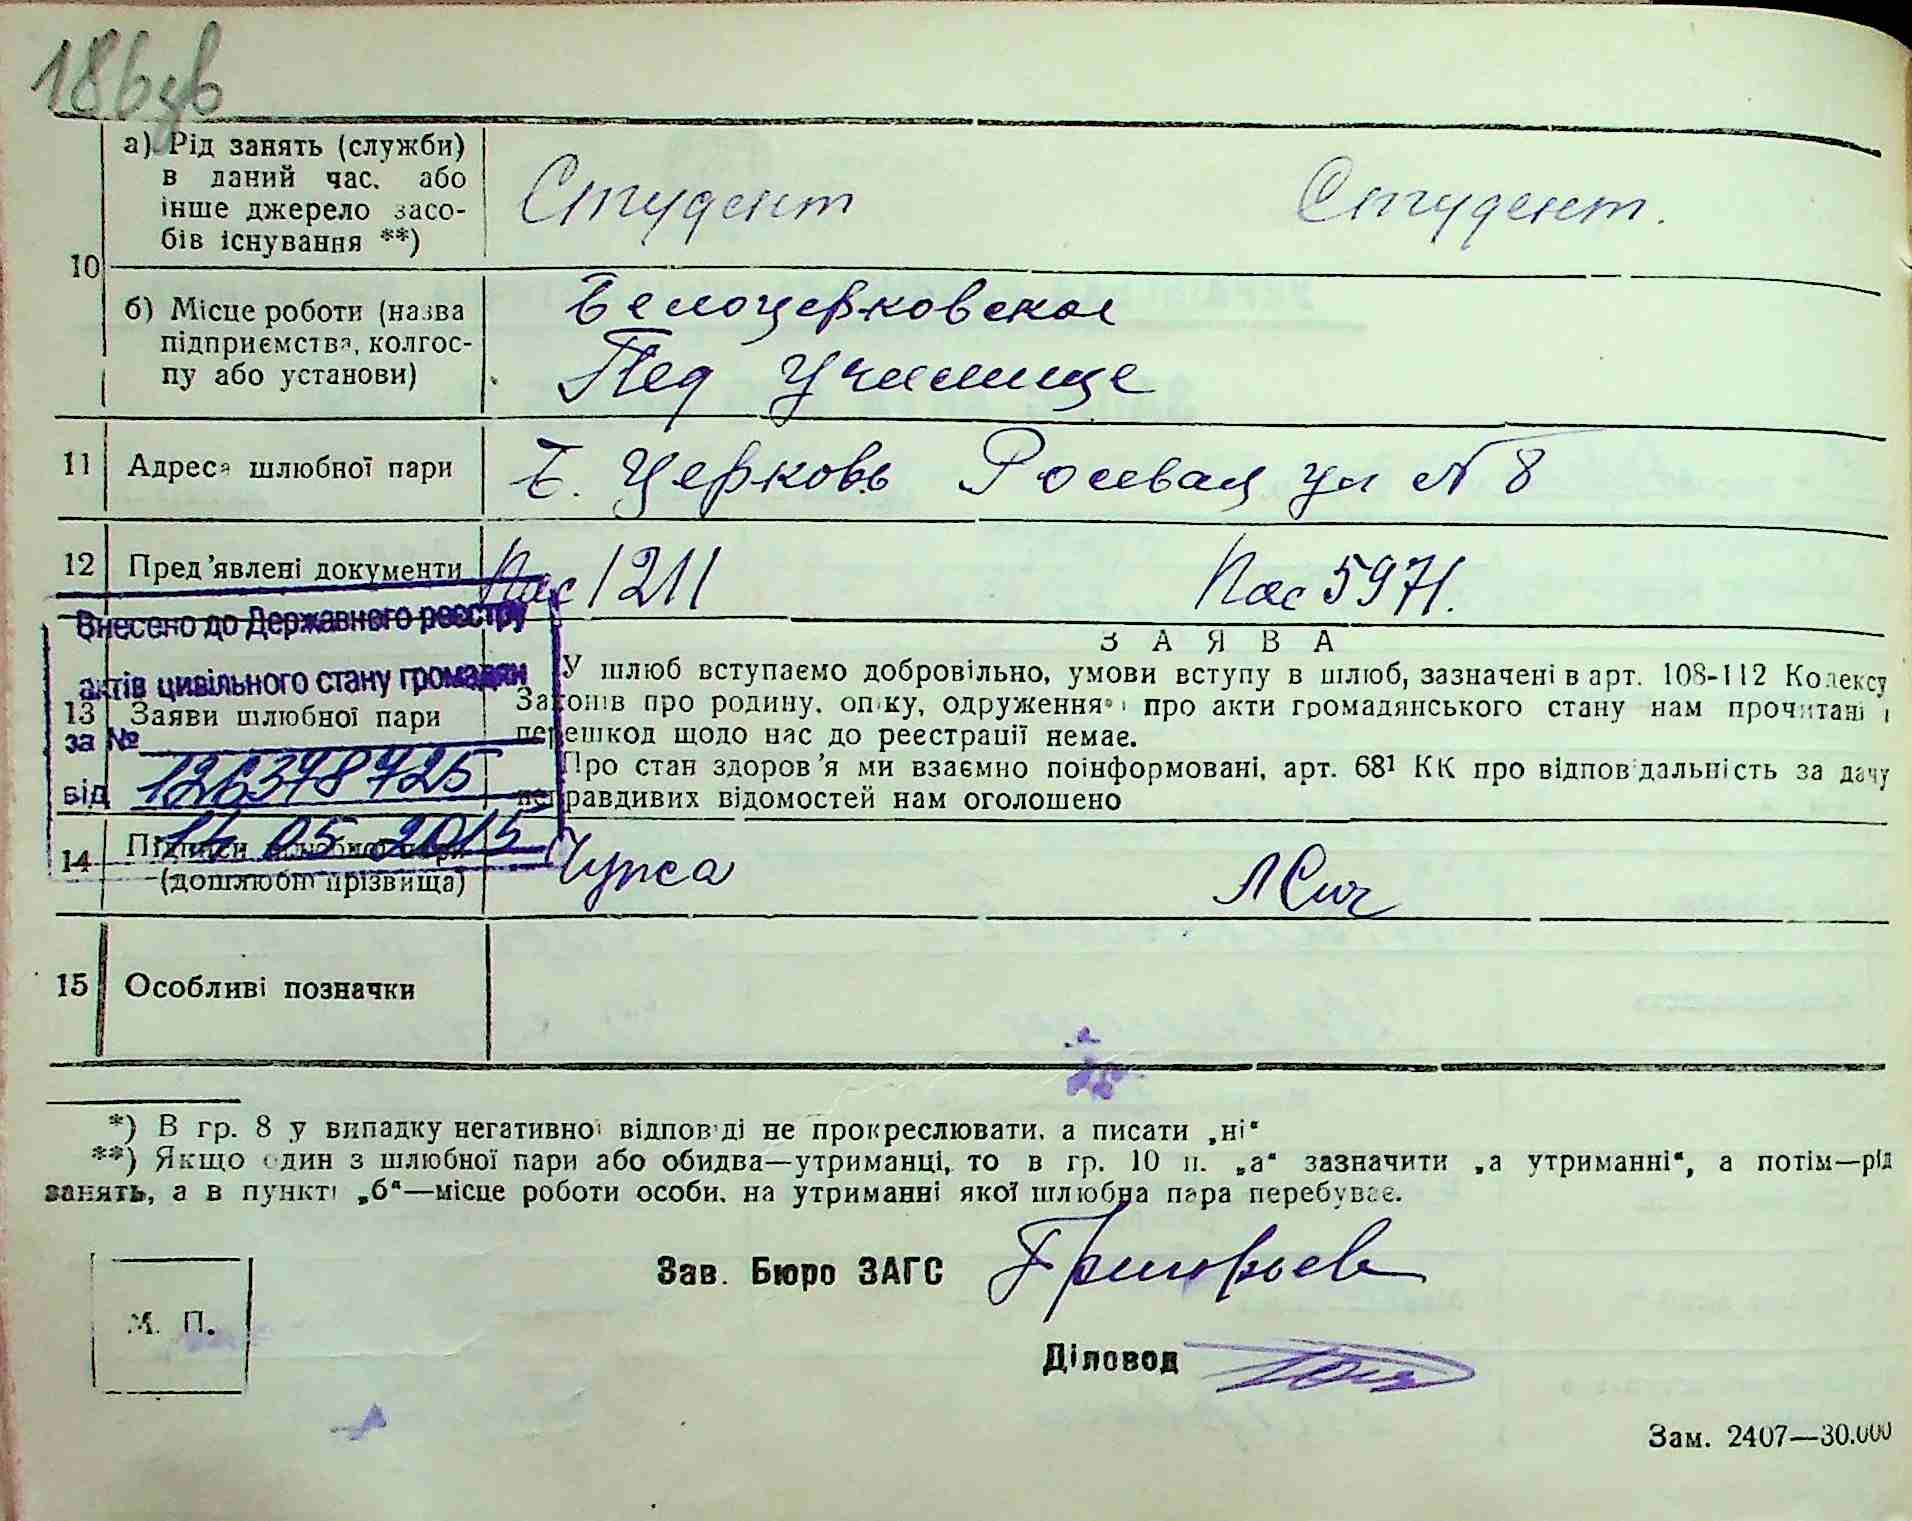 186зв
а) Рід занять (служби)
в даний час. або
інше джерело засо-
бів існування **)
Студент Студент.
10
б) Місце роботи (назва
підприємства, колгос-
пу або установи)
Белоцерковское
Пед Училище
11 Адреса шлюбної пари Б. Церковь ул N 8
12 Пред'явлені документи Пас 1211 Пас 5971.
Внесено до Державного реєстру
актів цивільного стану громадян
за №
126378725
від
14 05 2015
13 Заяви шлюбної пари
ЗАЯВА
У шлюб вступаємо добровільно, умови вступу в шлюб, зазначені в арт. 108-112 Кодексу
Законів про родину. опіку, одруження і про акти громадянського стану нам прочитані і
перешкод щодо нас до реєстрації немає.
Про стан здоров'я ми взаємно поінформовані, арт. 68¹ КК про відповідальність за дачу
неправдивих відомостей нам оголошено
14 Підписи шлюбної пари
(дошлюбні прізвища)
Чупса ЛСич
15 Особливі позначки
*) В гр. 8 у випадку негативної відповіді не прокреслювати, а писати „ні“
**) Якщо один з шлюбної пари або обидва—утриманці, то в гр. 10 п. „а“ зазначити „а утриманні“, а потім—рід
занять, а в пункті „б“—місце роботи особи, на утриманні якої шлюбна пара перебуває.
Зав. Бюро ЗАГС Григорьев
М. П.
Діловод
Зам. 2407—30.000